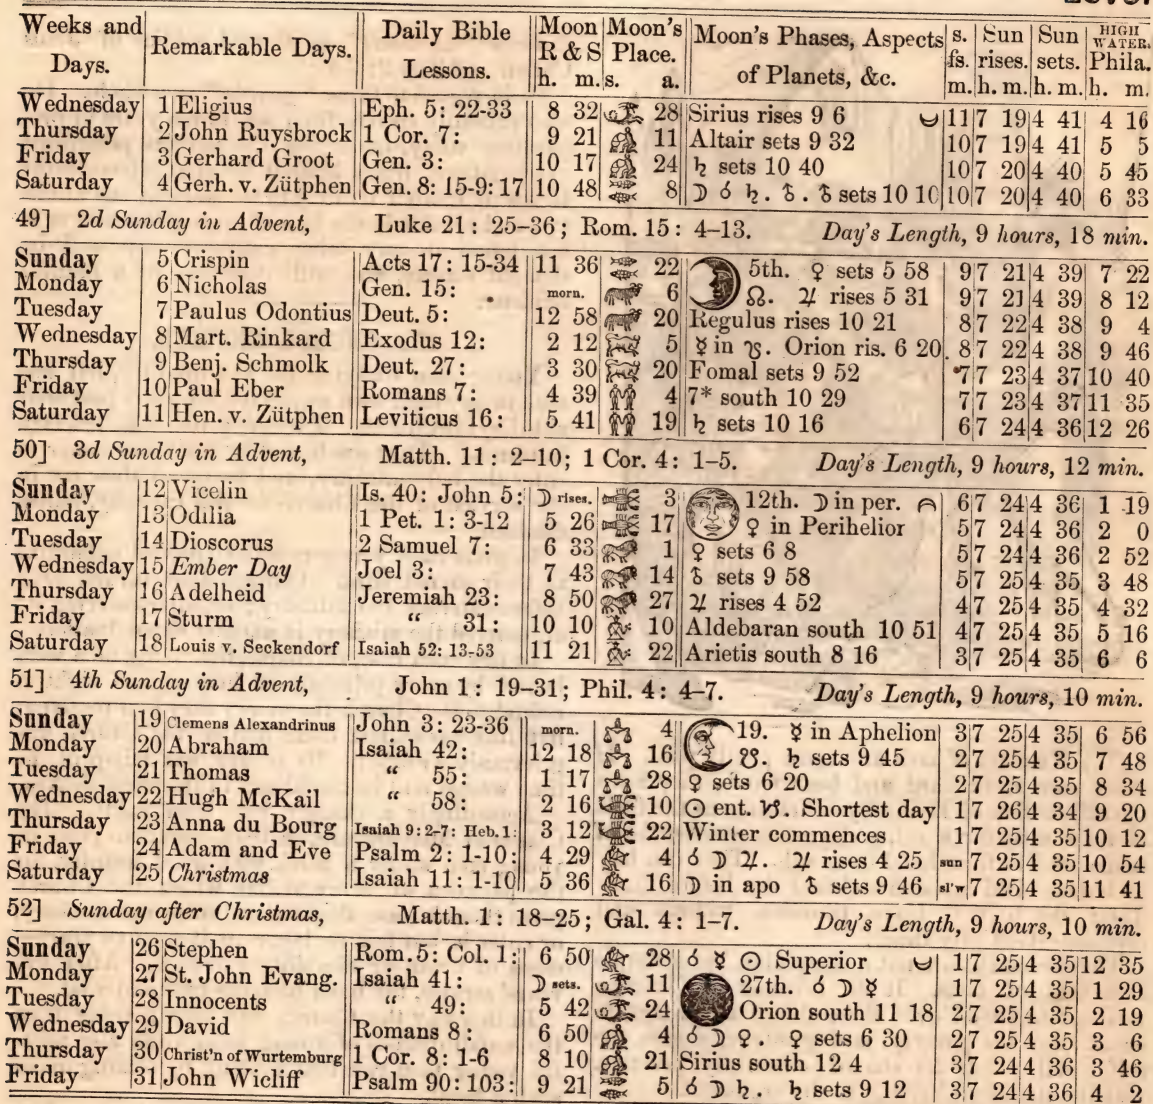 Weeks and Days. | Remarkable Days. | Daily Bible Lessons. | Moon R & S h. m. | Moon's Place. s. a. | Moon's Phases, Aspects of Planets, &c. | s. fs. m. | Sun rises. h. m. | Sun sets. h. m. | HIGH WATER. Phila. h. m.
Wednesday 1 Eligius Eph. 5: 22-33 8 32 28 Sirius rises 9 6 11 7 19 4 41 4 16
Thursday 2 John Ruysbrock 1 Cor. 7: 9 21 11 Altair sets 9 32 10 7 19 4 41 5 5
Friday 3 Gerhard Groot Gen. 3: 10 17 24 ♄ sets 10 40 10 7 20 4 40 5 45
Saturday 4 Gerh. v. Zütphen Gen. 8: 15-9: 17 10 48 8 ☽ ☌ ♄. ♁. ♁ sets 10 10 10 7 20 4 40 6 33
49] 2d Sunday in Advent, Luke 21: 25-36; Rom. 15: 4-13. Day's Length, 9 hours, 18 min.
Sunday 5 Crispin Acts 17: 15-34 11 36 22 5th. ♀ sets 5 58 9 7 21 4 39 7 22
Monday 6 Nicholas Gen. 15: morn. 6 ☊. ♃ rises 5 31 9 7 21 4 39 8 12
Tuesday 7 Paulus Odontius Deut. 5: 12 58 20 Regulus rises 10 21 8 7 22 4 38 9 4
Wednesday 8 Mart. Rinkard Exodus 12: 2 12 5 ☿ in ♑. Orion ris. 6 20 8 7 22 4 38 9 46
Thursday 9 Benj. Schmolk Deut. 27: 3 30 20 Fomal sets 9 52 7 7 23 4 37 10 40
Friday 10 Paul Eber Romans 7: 4 39 4 7* south 10 29 7 7 23 4 37 11 35
Saturday 11 Hen. v. Zütphen Leviticus 16: 5 41 19 ♄ sets 10 16 6 7 24 4 36 12 26
50] 3d Sunday in Advent, Matth. 11: 2-10; 1 Cor. 4: 1-5. Day's Length, 9 hours, 12 min.
Sunday 12 Vicelin Is. 40: John 5: ☽ rises. 3 12th. ☽ in per. 6 7 24 4 36 1 19
Monday 13 Odilia 1 Pet. 1: 3-12 5 26 17 ♀ in Perihelior 5 7 24 4 36 2 0
Tuesday 14 Dioscorus 2 Samuel 7: 6 33 1 ♀ sets 6 8 5 7 24 4 36 2 52
Wednesday 15 Ember Day Joel 3: 7 43 14 ♁ sets 9 58 5 7 25 4 35 3 48
Thursday 16 Adelheid Jeremiah 23: 8 50 27 ♃ rises 4 52 4 7 25 4 35 4 32
Friday 17 Sturm " 31: 10 10 10 Aldebaran south 10 51 4 7 25 4 35 5 16
Saturday 18 Louis v. Seckendorf Isaiah 52: 13-53 11 21 22 Arietis south 8 16 3 7 25 4 35 6 6
51] 4th Sunday in Advent, John 1: 19-31; Phil. 4: 4-7. Day's Length, 9 hours, 10 min.
Sunday 19 Clemens Alexandrinus John 3: 23-36 morn. 4 19. ☿ in Aphelion 3 7 25 4 35 6 56
Monday 20 Abraham Isaiah 42: 12 18 16 ☋. ♄ sets 9 45 2 7 25 4 35 7 48
Tuesday 21 Thomas " 55: 1 17 28 ♀ sets 6 20 2 7 25 4 35 8 34
Wednesday 22 Hugh McKail " 58: 2 16 10 ☉ ent. ♑. Shortest day 1 7 26 4 34 9 20
Thursday 23 Anna du Bourg Isaiah 9: 2-7: Heb. 1: 3 12 22 Winter commences 1 7 25 4 35 10 12
Friday 24 Adam and Eve Psalm 2: 1-10: 4 29 4 ☌ ☽ ♃. ♃ rises 4 25 sun 7 25 4 35 10 54
Saturday 25 Christmas Isaiah 11: 1-10 5 36 16 ☽ in apo ♁ sets 9 46 sl'w 7 25 4 35 11 41
52] Sunday after Christmas, Matth. 1: 18-25; Gal. 4: 1-7. Day's Length, 9 hours, 10 min.
Sunday 26 Stephen Rom. 5: Col. 1: 6 50 28 ☌ ☿ ☉ Superior 1 7 25 4 35 12 35
Monday 27 St. John Evang. Isaiah 41: ☽ sets. 11 27th. ☌ ☽ ☿ 1 7 25 4 35 1 29
Tuesday 28 Innocents " 49: 5 42 24 Orion south 11 18 2 7 25 4 35 2 19
Wednesday 29 David Romans 8: 6 50 4 ☌ ☽ ♀. ♀ sets 6 30 2 7 25 4 35 3 6
Thursday 30 Christ'n of Wurtemburg 1 Cor. 8: 1-6 8 10 21 Sirius south 12 4 3 7 24 4 36 3 46
Friday 31 John Wicliff Psalm 90: 103: 9 21 5 ☌ ☽ ♄. ♄ sets 9 12 3 7 24 4 36 4 2